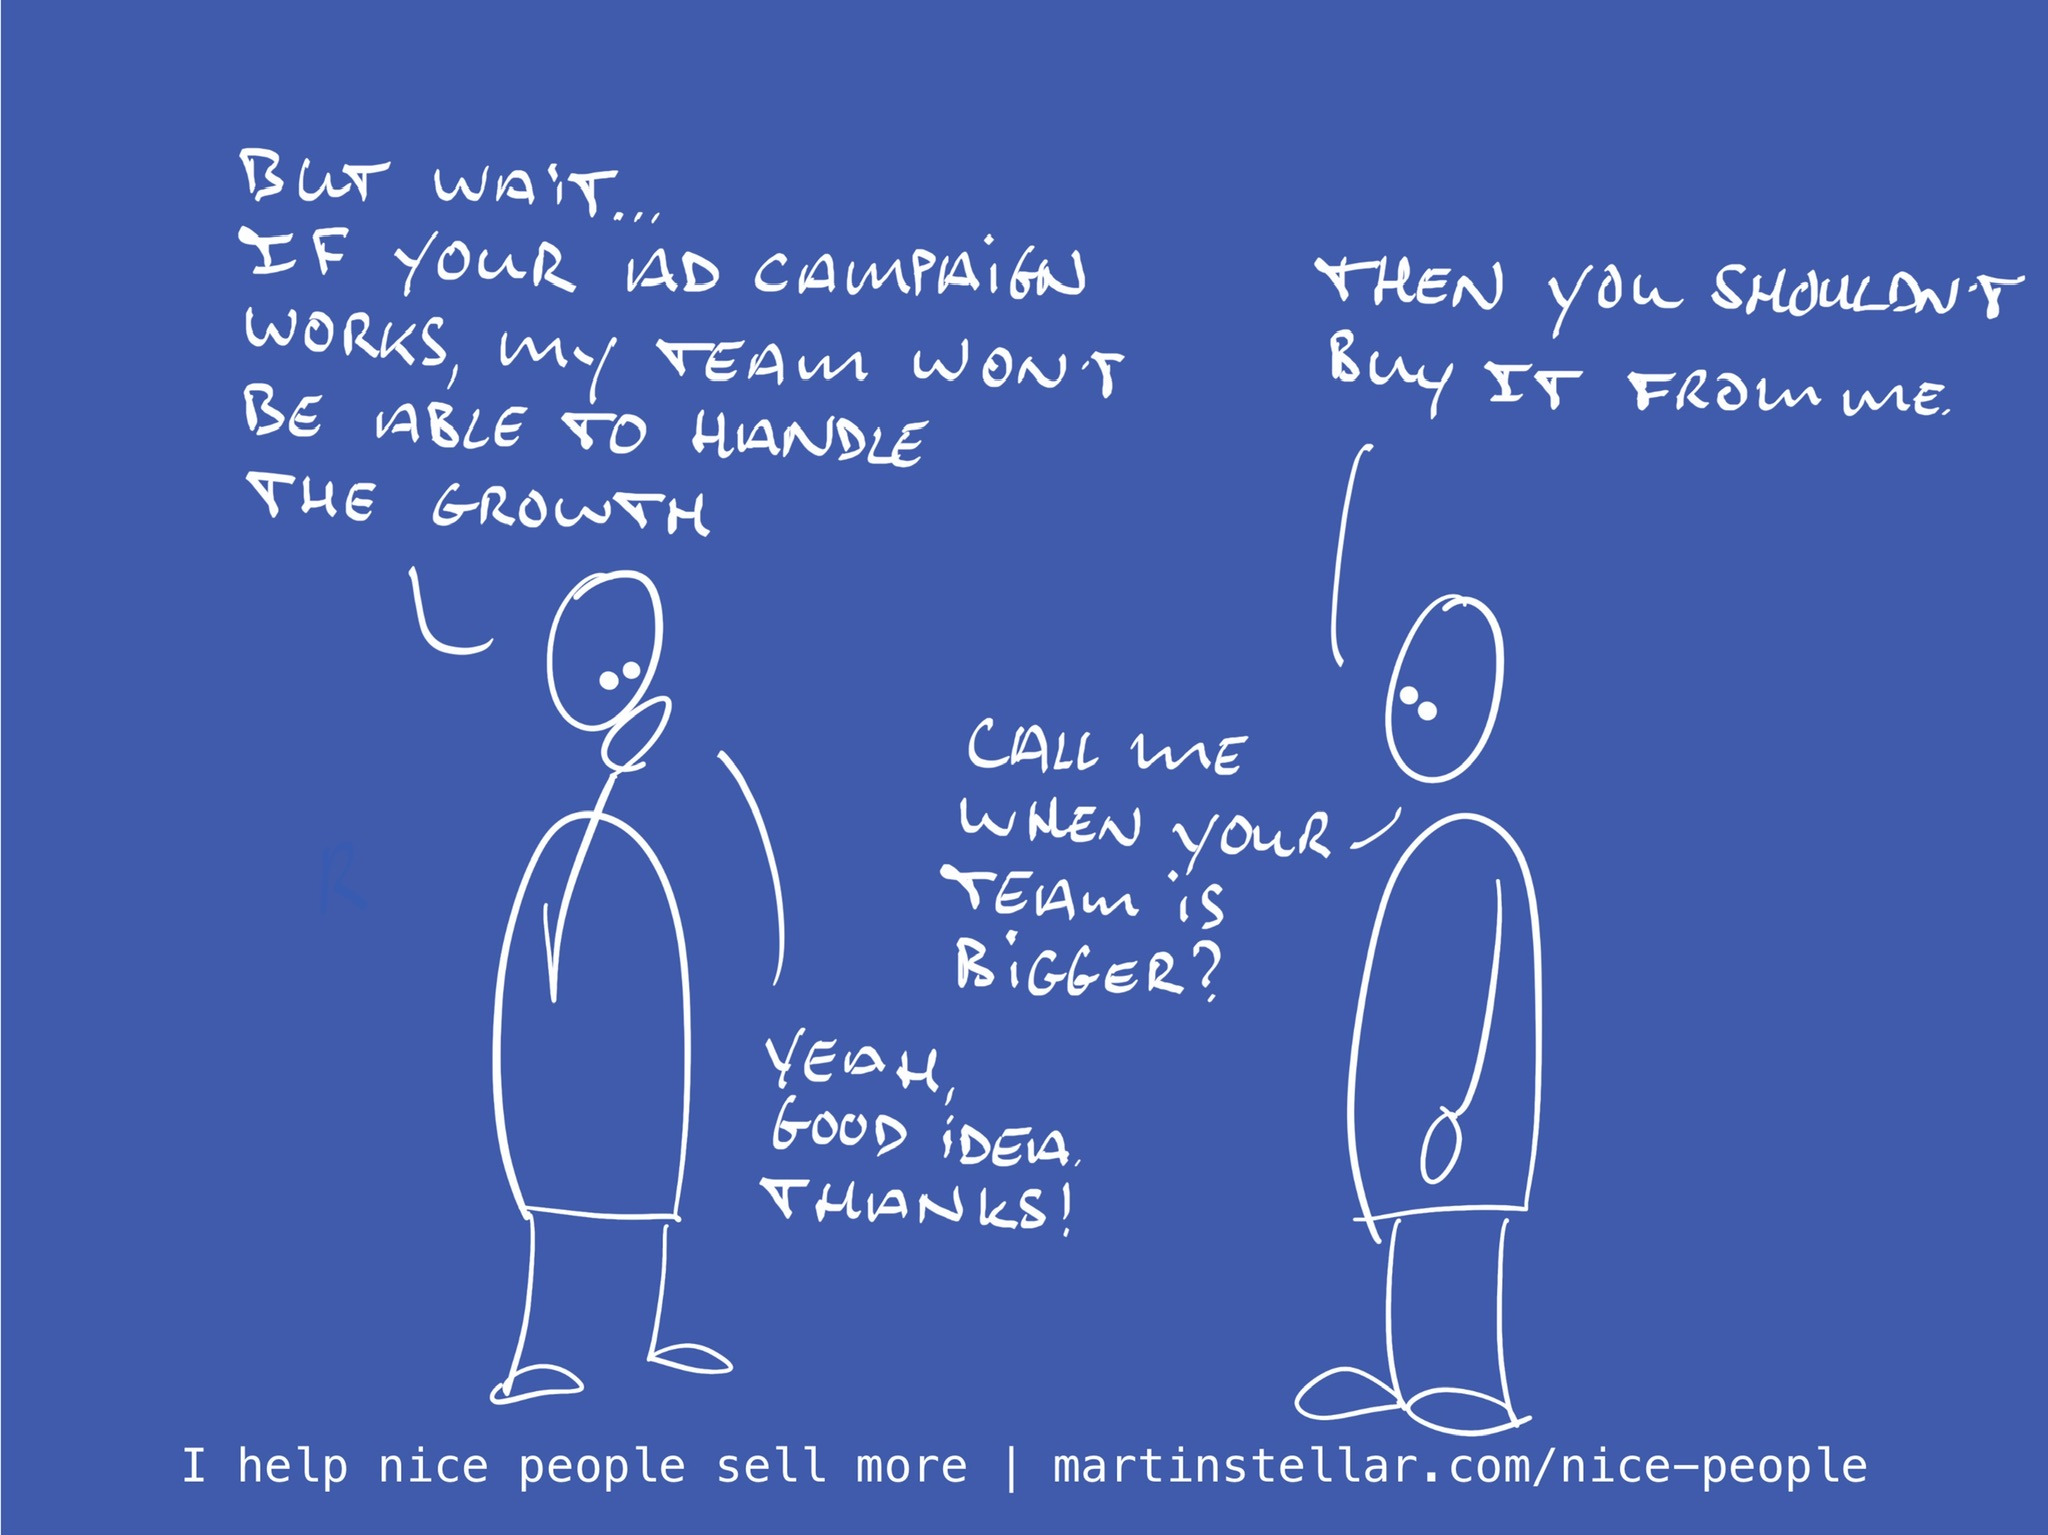 BUT WAIT...
IF YOUR AD CAMPAIGN
WORKS, MY TEAM WON'T
BE ABLE TO HANDLE
THE GROWTH
THEN YOU SHOULDN'T
BUY IT FROM ME.
CALL ME
WHEN YOUR
TEAM IS
BIGGER?
YEAH,
GOOD IDEA.
THANKS!
R
I help nice people sell more | martinstellar.com/nice-people